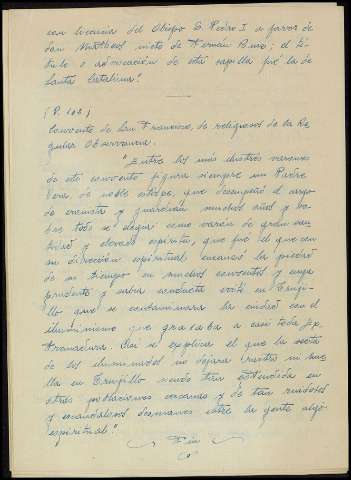 con licencia del Obispo D. Pedro I a favor de
don Matheos nieto de Hernán Bravo; el tí-
tulo o advocación de esta capilla fué la de
Santa Catalina."
(P. 102)
Convento de San Francisco, de religiosos de la Re
gular Observancia.
"Entre los más ilustres varones
de este convento figura siempre un Padre
de noble estirpe, que desempeñó el cargo
de cronista y guardián muchos años y so-
bre todo se elogió como varón de gran san-
tidad y elevado espíritu, que fue el que con
su dirección espiritual encauzó la piedad
de su tiempo en muchos conventos y cuya
prudente y sabia conducta evitó en Truji-
llo que se contaminara la ciudad con el
iluminismo que grasaba a casi toda Ex-
tremadura. Así se explica el que la secta
de los iluminados no dejara rastro ni hue
lla en Trujillo siendo tan extendida en
otras poblaciones cercanas y de tan ruidosos
y escandalosos desmanes entre la gente algo
espiritual."
Fin